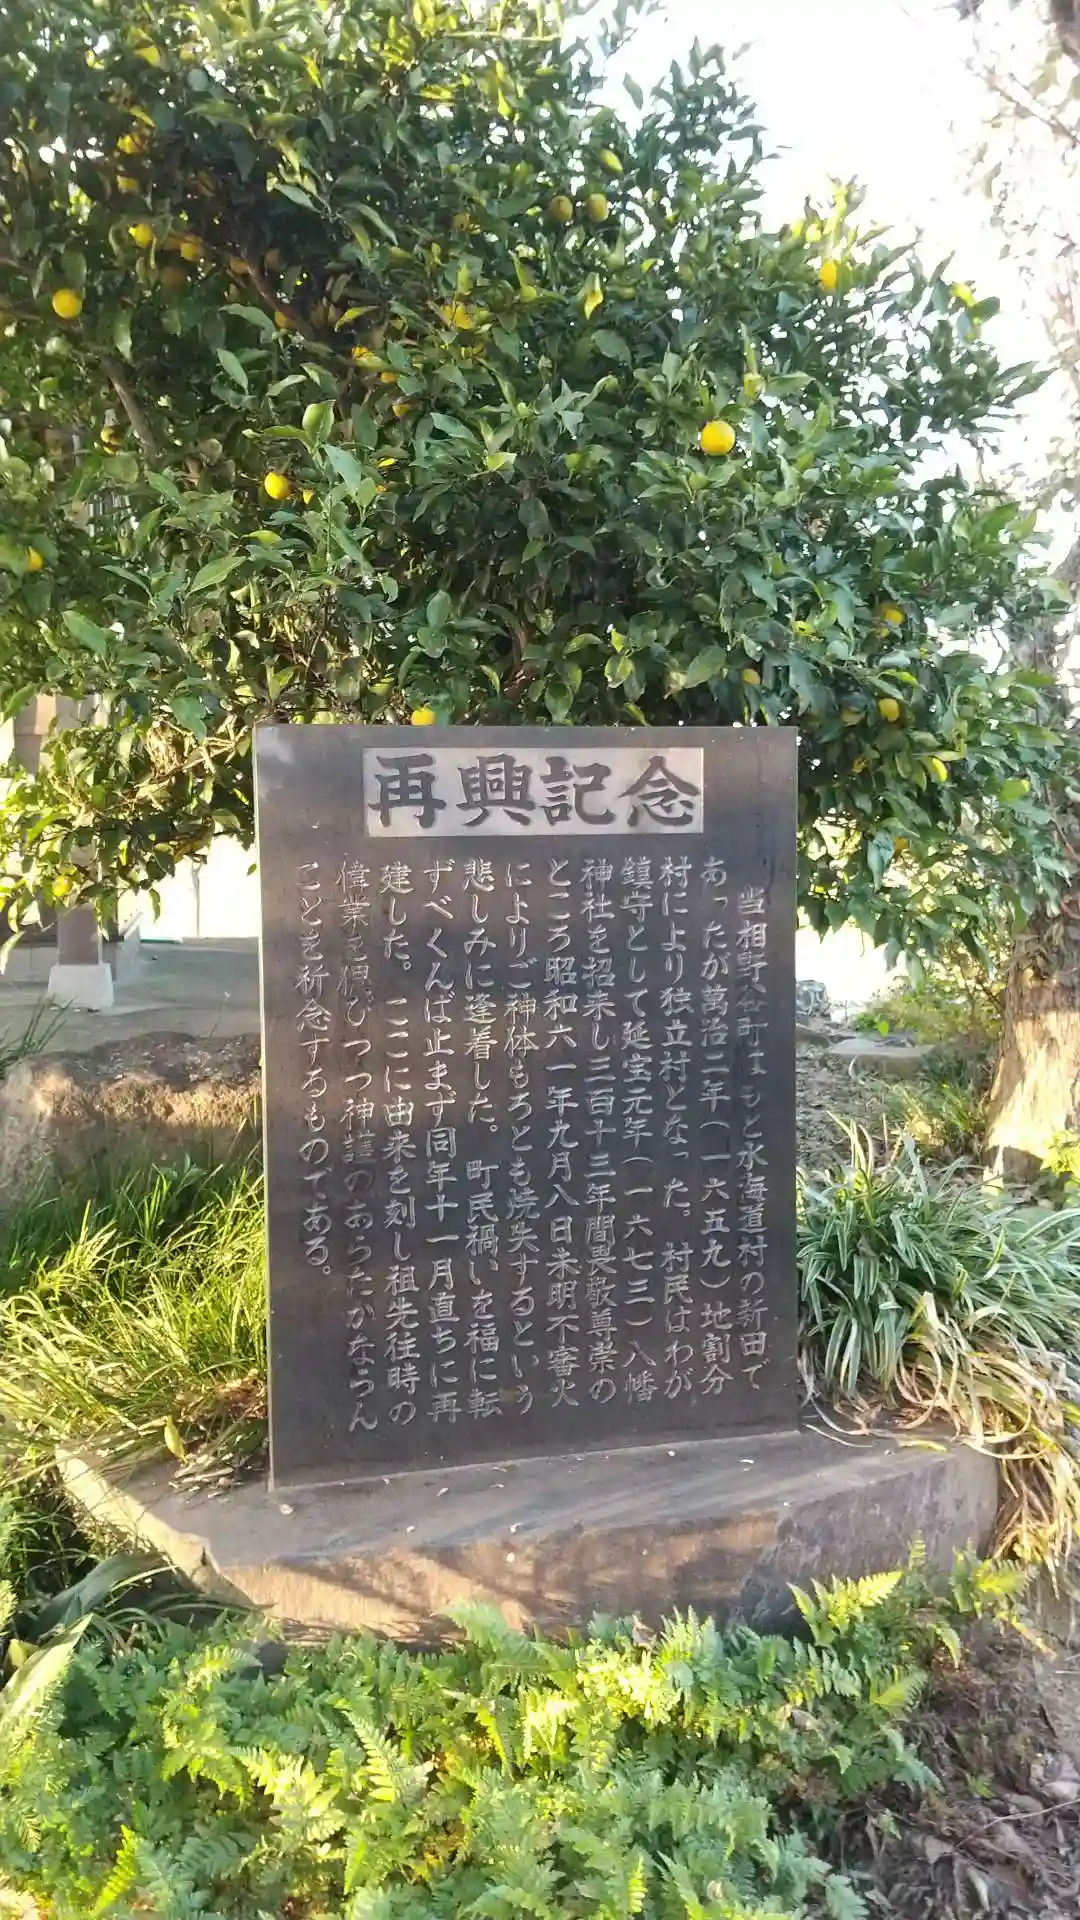 再興記念
当相野谷町はもと水海道村の新田で
あったが萬治二年(一六五九)地割分
村により独立村となった。村民はわが
鎮守として延宝元年(一六七三)八幡
神社を招来し三百十三年間畏敬尊崇の
ところ昭和六一年九月八日未明不審火
によりご神体もろとも焼失するという
悲しみに逢着した。町民禍いを福に転
ずべくんば止まず同年十一月直ちに再
建した。ここに由来を刻し祖先往時の
偉業を偲びつつ神護のあらたかならん
ことを祈念するものである。